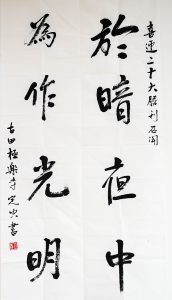 喜迎二十大勝利召開
於暗夜中
為作光明
古田極樂寺定尖書